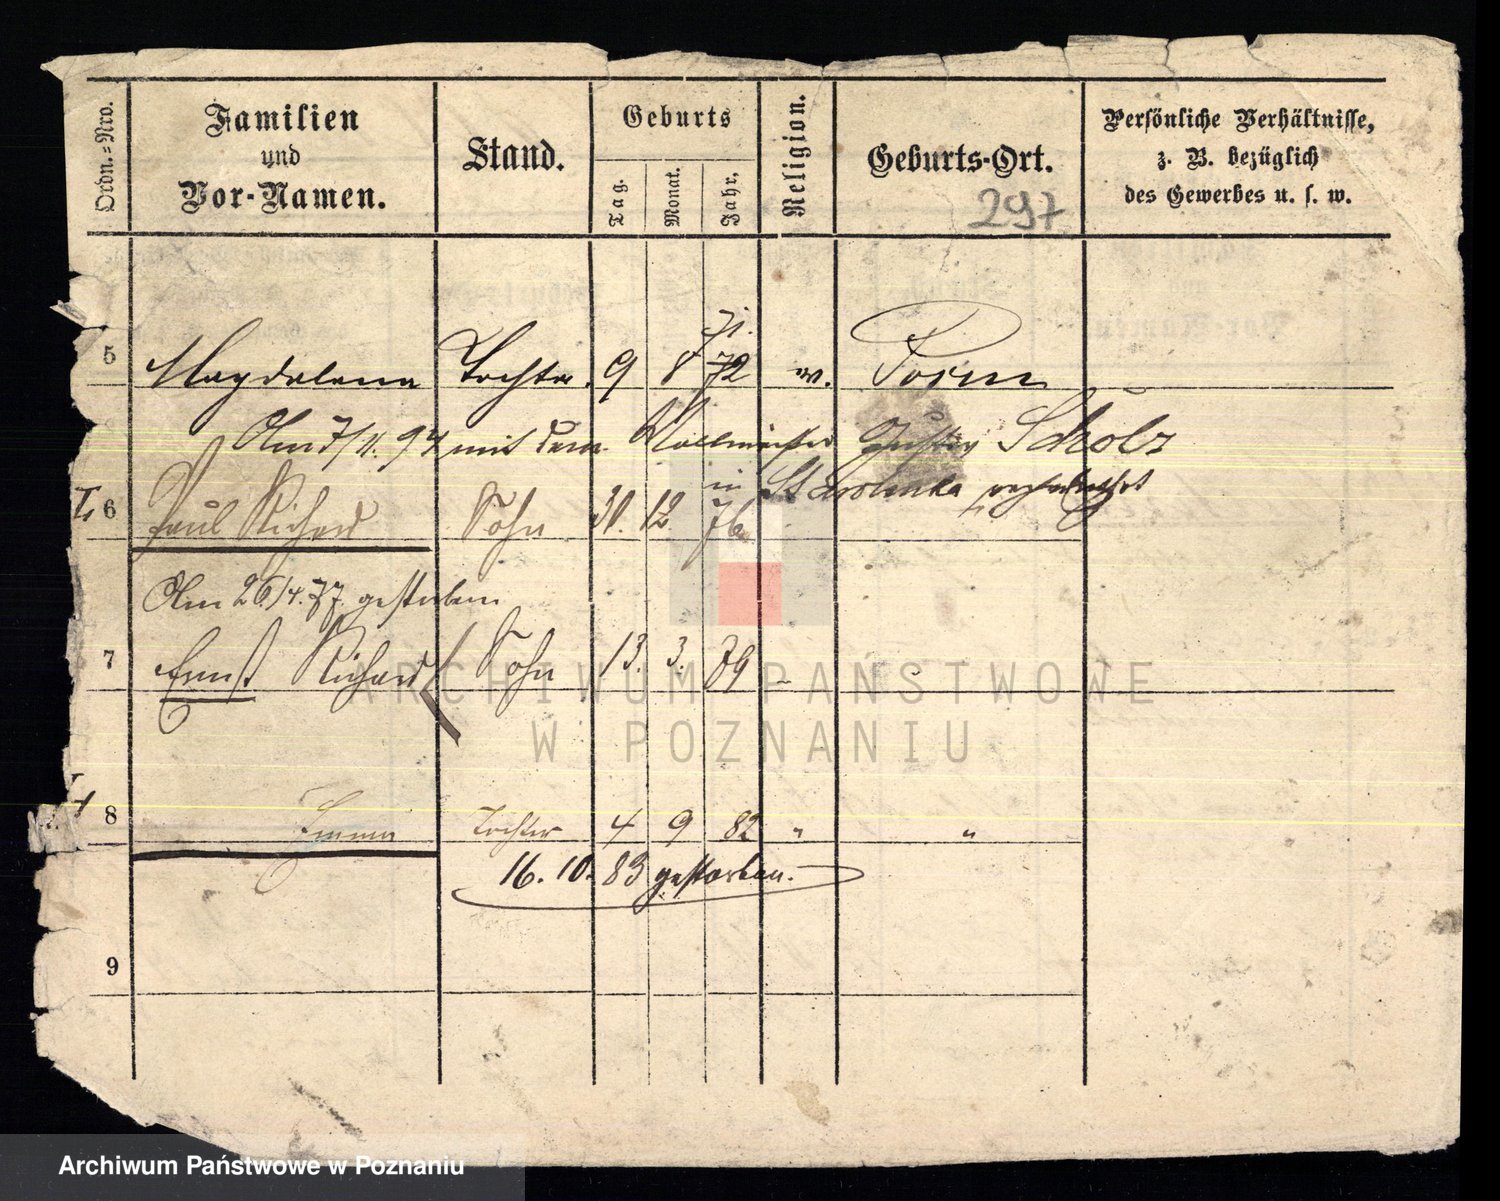 Ordn.=Nro.
Familien
und
Vor-Namen.
Stand.
Geburts
Tag.
Monat.
Jahr.
Religion.
Geburts-Ort.
297
Persönliche Verhältnisse,
z. B. bezüglich
des Gewerbes u. s. w.
71.
5 Magdalena Tochter. 9 8 72 w. Posen
Am 7/11. 94 mit dem Gustav Scholz
in Starolenka verheirathet
6 Paul Richard Sohn 30. 12. 76
Am 26/4. 77. gestorben
7 Ernst Richard Sohn 13. 3. 79
ARCHIWUM PAŃSTWOWE
W POZNANIU
8 Emma Tochter 4 9 82 " "
16. 10. 83 gestorben.
9
Archiwum Państwowe w Poznaniu